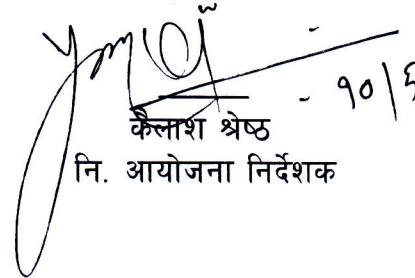 - १०/६
कैलाश श्रेष्ठ
नि. आयोजना निर्देशक